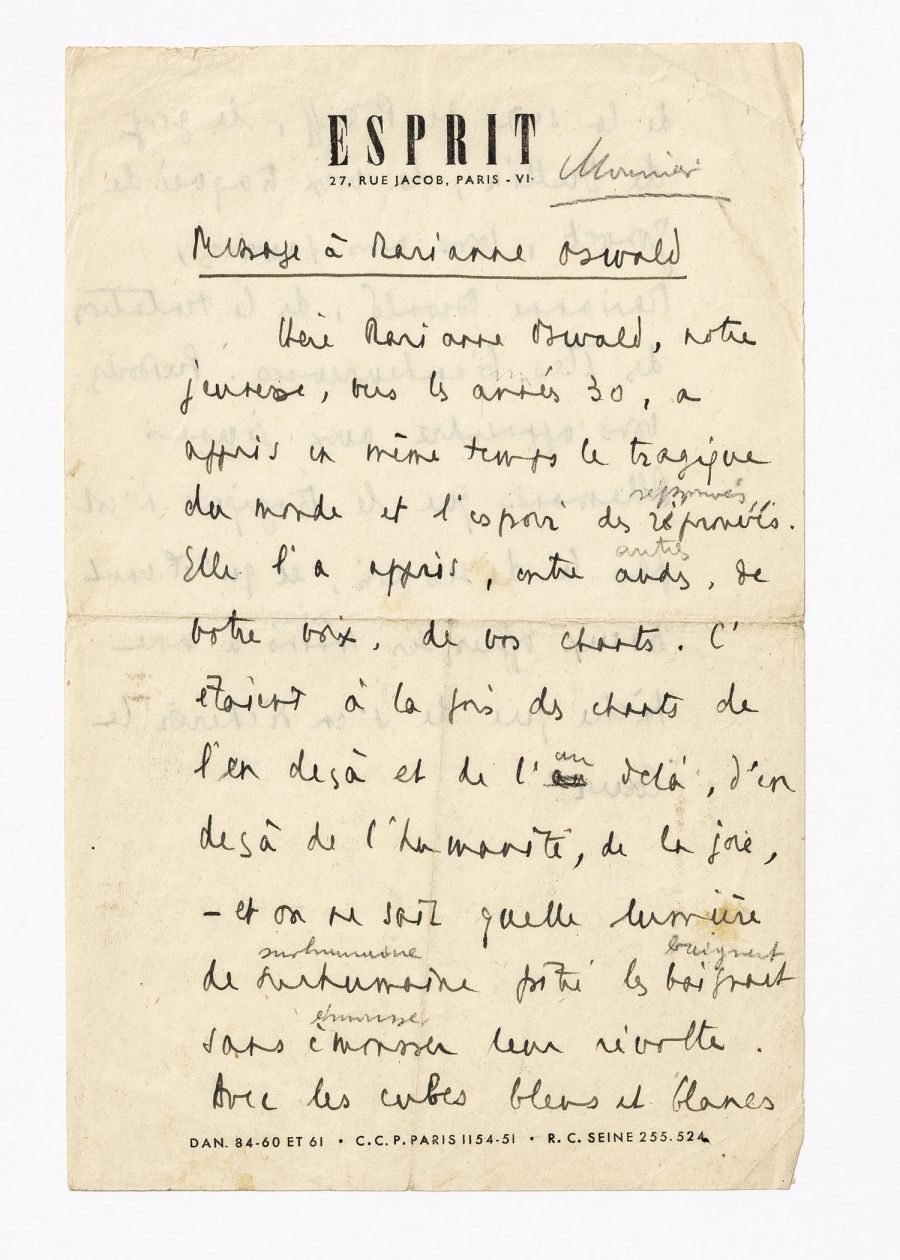 ESPRIT
27, RUE JACOB, PARIS - VI·
Mounier
Message à Marianne Oswald
Chère Marianne Oswald, notre
jeunesse, vers les années 30, a
appris en même temps le tragique
du monde et l'espoir des
réprouvés
réprouvés.
autres
Elle l'a appris, entre autres, de
votre voix, de vos chants. C'
étaient à la fois des chants de
au
l'en deçà et de l'au delà, d'en
deçà de l'humanité, de la joie,
– et on ne sait quelle lumière
surhumaine baignent
de surhumaine pitié les baignait
émousser
sans émousser leur révolte.
Avec les cubes bleus et blancs
DAN. 84-60 ET 61 • C.C.P. PARIS 1154-51 • R.C. SEINE 255.524